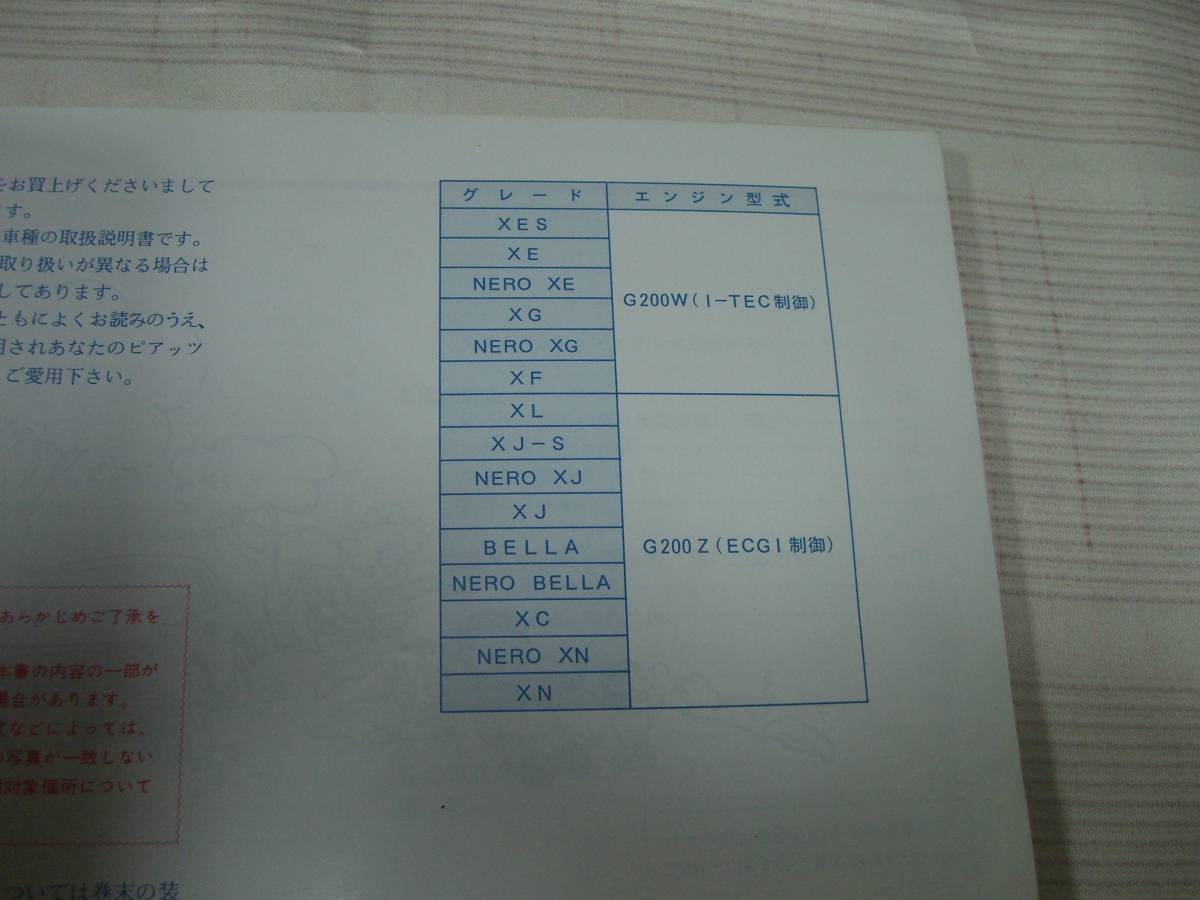 をお買上げくださいまして
ます。
車種の取扱説明書です。
取り扱いが異なる場合は
してあります。
ともによくお読みのうえ、
用されあなたのピアッツ
ご愛用下さい。
あらかじめご了承を
本書の内容の一部が
場合があります。
などによっては、
写真が一致しない
対象個所について
ついては巻末の装
グレード エンジン型式
XES
XE
NERO XE
G200W(I-TEC制御)
XG
NERO XG
XF
XL
XJ-S
NERO XJ
XJ
BELLA
G200Z(ECGI制御)
NERO BELLA
XC
NERO XN
XN